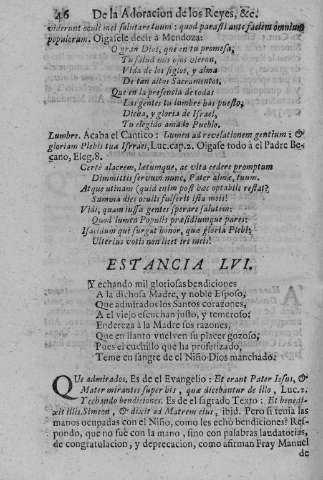 46 De la Adoracion de los Reyes, &c.
viderunt oculi mei salutare tuum: quod parasti ante faciem omnium
populorum. Oigasele decir à Mendoza:
O gran Dios, que en tu promesa,
Tu salud mis ojos vieron,
Vida de los siglos, y alma
De tan altos Sacramentos,
Que en la presencia de todas
Las gentes tu lumbre has puesto,
Dicha, y gloria de Israel,
Tu elegido amado Pueblo.
Lumbre. Acaba el Cantico: Lumen ad revelationem gentium: &
gloriam Plebis tuæ Israel, Luc. cap. 2. Oigase todo à el Padre Be-
çano, Eleg. 8.
Certè alacrem, lætumque, ac vita cedere promptum
Dimmittis servum nunc, Pater alme, tuum.
Atque utinam (quid enim post hac optabile restat?
Summa dies oculis fulserit ista meis!
Vidi, quam iussa gentes sperare salutem:
Quod lumen Populis præsidiumque pares:
Isacidum qui surgat honor, quæ gloria Plebi:
Ulterius votis non licet ire meis!
ESTANCIA LVI.
Y echando mil gloriosas bendiciones
A la dichosa Madre, y noble Esposo,
Que admirados los Santos corazones,
A el viejo escuchan justo, y temeroso:
Endereza à la Madre sus razones,
Que en llanto vuelven su placer gozoso;
Pues el cuchillo que ha profetizado,
Teme en sangre de el Niño Dios manchado.
QUe admirados. Es de el Evangelio: Et erant Pater Iesus, &
Mater mirantes super bis, quæ dicebantur de illo, Luc. 2.
Y echando bendiciones. Es de el sagrado Texto: Et bened-
ixit illis Simeon, & dixit ad Matrem eius, ibid. Pero si tenia las
manos ocupadas con el Niño, como les echò bendiciones? Res-
pondo, que no fuè con la mano, sino con palabras laudatorias,
de congratulacion, y deprecacion, como afirman Fray Manuel
de